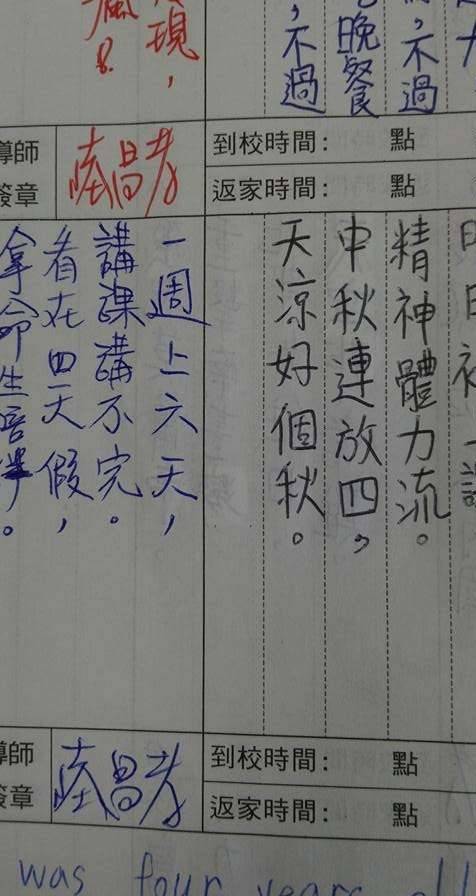 ，不過
晚餐
，不過
現，
瘋？
導師
簽章
到校時間： 點
返家時間： 點
精神體力流。
中秋連放四，
天涼好個秋。
一週上六天，
講課講不完。
看在四天假，
拿命生唔學。
導師
簽章
到校時間： 點
返家時間： 點
was four years old